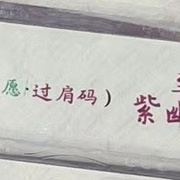 愿·过肩码)
紫幽